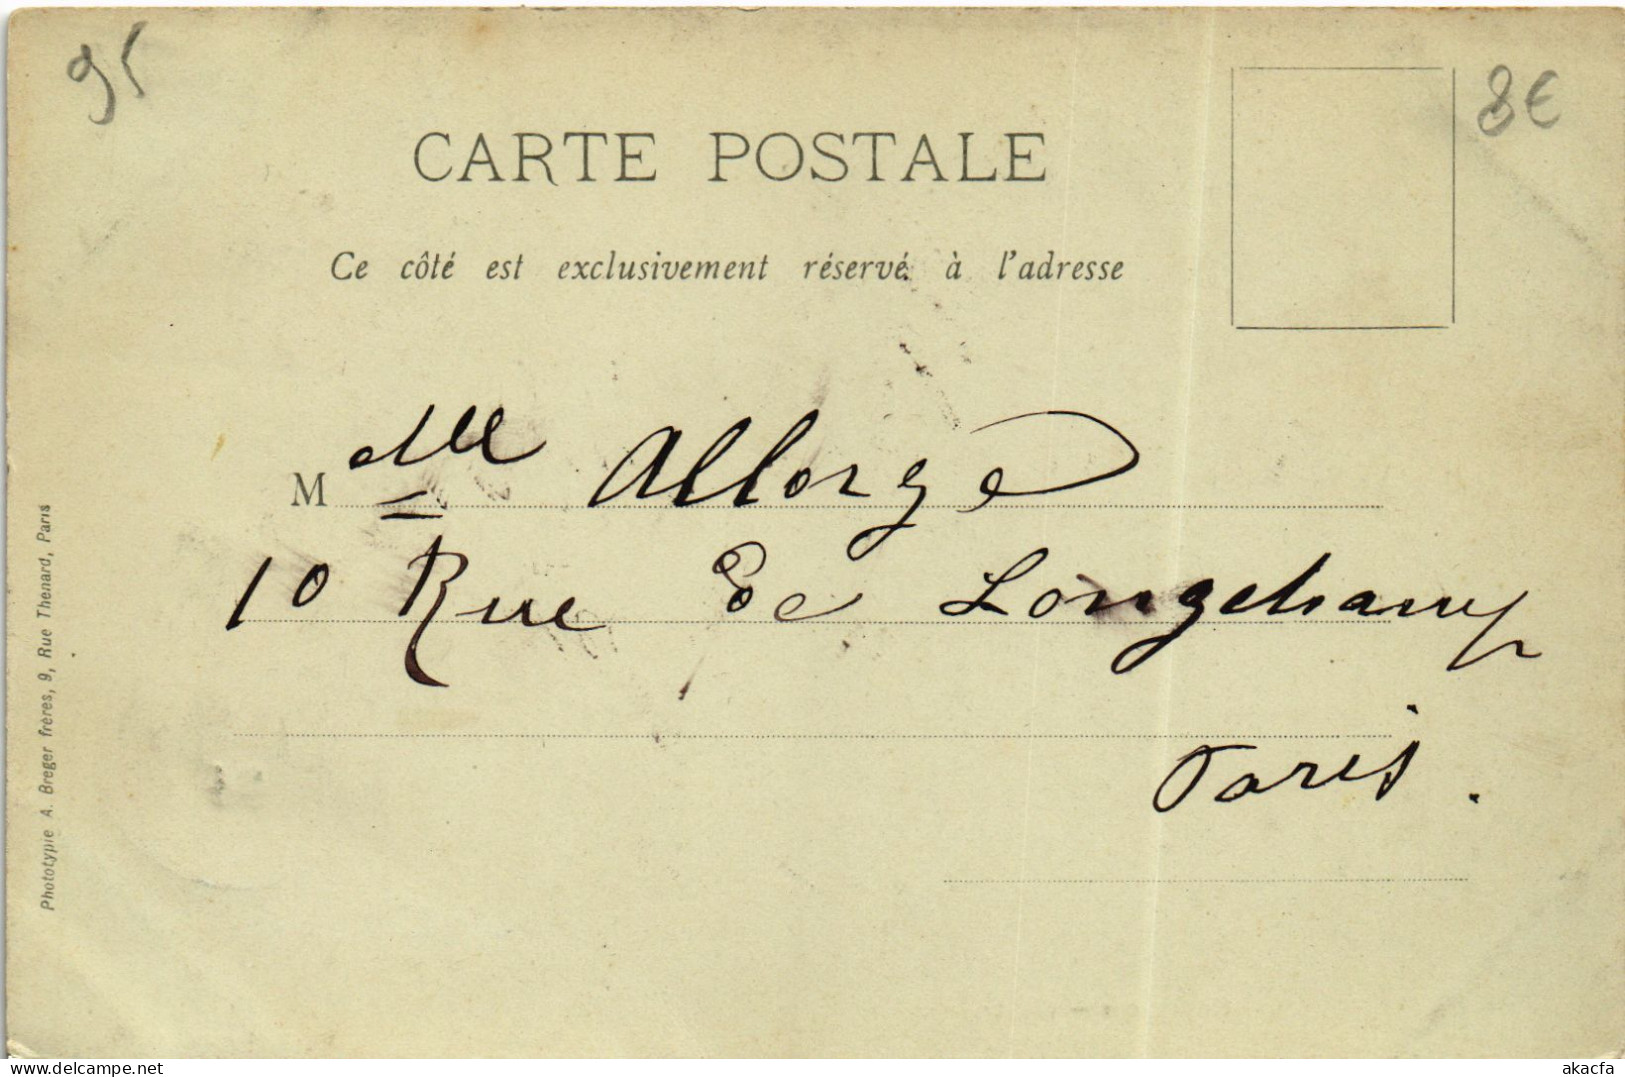 95
8€
CARTE POSTALE
Ce côté est exclusivement réservé à l'adresse
Melle Allorge
10 Rue de Longchamp
Paris.
Phototypie A. Breger frères, 9, Rue Thenard, Paris
www.delcampe.net
akacfa